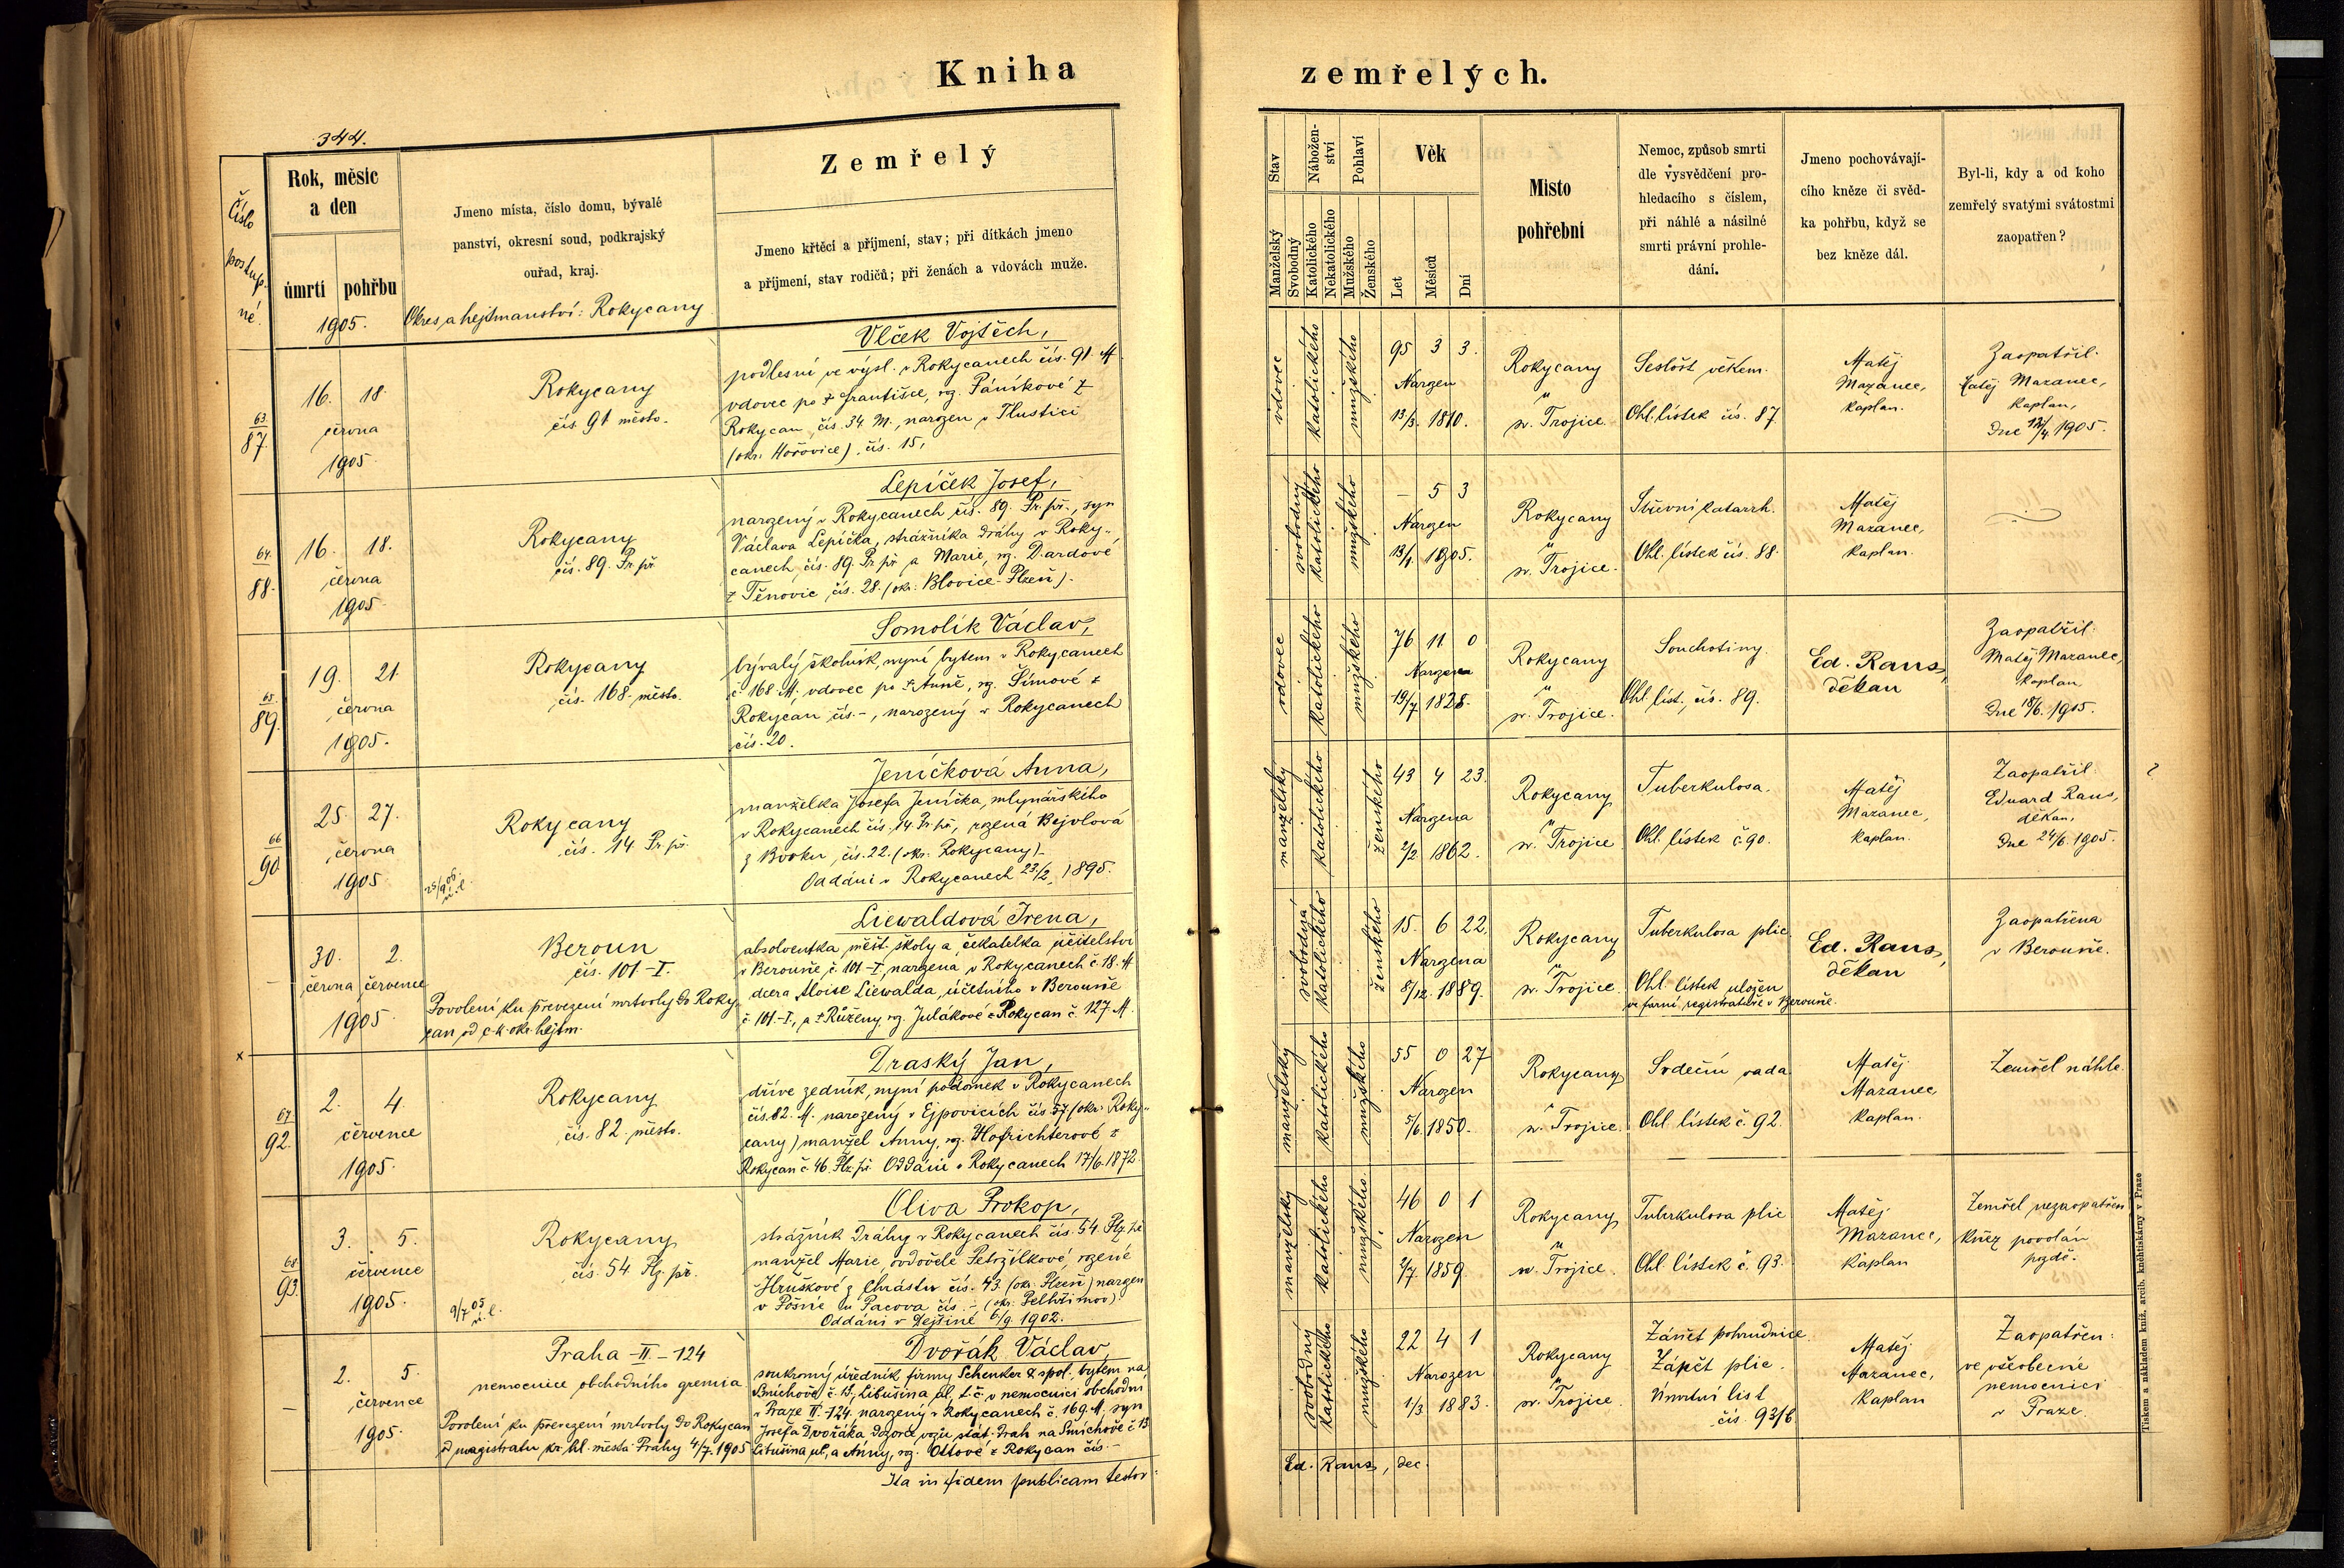 Kniha
zemřelých.
344.
Číslo
postup.
né.
Rok, měsíc
a den
úmrtí
pohřbu
1905.
Jmeno místa, číslo domu, bývalé
panství, okresní soud, podkrajský
ouřad, kraj.
Okres a hejtmanství: Rokycany
Zemřelý
Jmeno křtěcí a příjmení, stav; při dítkách jmeno
a příjmení, stav rodičů; při ženách a vdovách muže.
Stav
Manželský
Svobodný
Nábožen-
ství
Katolického
Nekatolického
Pohlaví
Mužského
Ženského
Věk
Let
Měsíců
Dní
Místo
pohřební
Nemoc, způsob smrti
dle vysvědčení pro-
hledacího s číslem,
při náhlé a násilné
smrti právní prohle-
dání.
Jmeno pochovávají-
cího kněze či svěd-
ka pohřbu, když se
bez kněze dál.
Byl-li, kdy a od koho
zemřelý svatými svátostmi
zaopatřen?
63.
87.
16. 18.
června
1905.
Rokycany
čís 91 město.
Vlček Vojtěch,
podlesní ve výsl. v Rokycanech čís. 91. M
vdovec po † Františce, roz. Páníkové z
Rokycan, čís. 34. M., narozen v Tlustici
(okr. Hořovice), čís. 15,
vdovec
katolického
mužského
95 3 3.
Narozen
13/3. 1810.
Rokycany
u
sv. Trojice.
Sešlost věkem.
Ohl. lístek čís. 87.
Matěj
Mazanec,
kaplan.
Zaopatřil.
Matěj Mazanec,
kaplan,
Dne 12/4 1905.
64.
88.
16. 18.
června
1905.
Rokycany
čís. 89. Pr. př.
Lepíček Josef,
narozený v Rokycanech, čís. 89. Pr. př., syn
Václava Lepíčka, strážníka dráhy v Roky-
canech, čís. 89. Pr. př. a Marie, roz. Dardové
z Těnovic, čís. 28. (okr. Blovice-Plzeň).
svobodný
katolického
mužského
– 5 3
Narozen
13/1. 1905.
Rokycany
u
sv. Trojice.
Střevní katarrh.
Ohl. lístek čís. 88.
Matěj
Mazanec,
kaplan.
65.
89.
19. 21.
června
1905.
Rokycany
čís. 168 město.
Somolík Václav,
bývalý školník, nyní bytem v Rokycanech
č 168 M. vdovec po † Anně, roz. Šímové z
Rokycan, čís.–, narozený v Rokycanech
čís. 20.
vdovec
katolického
mužského
76 11 0
Narozen
19/7 1828.
Rokycany
u
sv. Trojice.
Souchotiny.
Ohl. líst., čís. 89.
Ed. Rans,
děkan
Zaopatřil.
Matěj Mazanec,
kaplan,
Dne 18/6. 1905.
66
90
25. 27.
června
1905
Rokycany
čís. 14 Pr. př.
25/9 06.
ú. l.
Jeníčková Anna,
manželka Josefa Jeníčka, mlynářského
v Rokycanech čís. 14. Pr. př., rozená Bejvlová
z Bvoku, čís. 22. (okr. Rokycany).
Oddáni v Rokycanech 23/2, 1895.
manželský
katolického
ženského
43 4 23.
Narozena
2/2 1862.
Rokycany
u
sv. Trojice
Tuberkulosa.
Ohl. lístek č. 90.
Matěj
Mazanec,
kaplan.
Zaopatřil.
Eduard Rans,
děkan,
Dne 24/6. 1905.
?
–
30. 2.
června července
1905
Beroun
čís. 101–I.
Povolení ku převezení mrtvoly do Roky-
can od c.k. okr. hejtm.
Liewaldová Irena,
absolventka měšt. školy a čekatelka učitelství
v Berouně, č. 101–I, narozená v Rokycanech č. 18. M
dcera Aloise Liewalda, účetního v Berouně
č. 101–I., a † Růženy, roz. Julákové z Rokycan č. 127 M.
svobodná
katolického
ženského
15. 6 22.
Narozena
8/12. 1889.
Rokycany
u
sv. Trojice
Tuberkulosa plic
Ohl. lístek uložen
ve farní registratuře v Berouně.
Ed. Rans,
děkan
Zaopatřena
v Berouně.
x
67
92.
2. 4
července
1905.
Rokycany
čís. 82. město.
Draský Jan,
dříve zedník, nyní podomek v Rokycanech
čís. 82. M. narozený v Ejpovicích čís 57 (okr. Roky-
cany) manžel Anny, roz. Hofrichterové z
Rokycan č. 46. Plz. př. Oddáni v Rokycanech 17/6. 1872.
manželský
katolického
mužského
55 0 27
Narozen
5/6. 1850.
Rokycany
u
sv. Trojice.
Srdeční vada
Ohl. lístek č. 92.
Matěj
Mazanec,
kaplan.
Zemřel náhle.
68.
93.
3. 5.
července
1905.
Rokycany
čís. 54 Plz. př.
9/7 05
ú. l.
Oliva Prokop,
strážník dráhy v Rokycanech čís. 54 Plz. př.
manžel Marie, ovdovělé Petržilkové, rozené
Hruškové z Chrástu čís. 43. (okr. Plzeň) narozen
v Pošné u Pacova čís. – (okr. Pelhřimov).
Oddáni v Dejšině 6/9. 1902.
manželský
katolického
mužského
46 0 1
Narozen
2/7. 1859.
Rokycany
u
sv. Trojice.
Tuberkulosa plic
Ohl. lístek č. 93.
Matěj
Mazanec,
kaplan
Zemřel nezaopatřen
kněz povolán
pozdě.
–
2. 5.
července
1905.
Praha–II.–124
nemocnice obchodního gremia
Povolení ku převezení mrtvoly do Rokycan
od magistratu kr. hl. města Prahy 4/7. 1905
Dvořák Václav,
soukromý úředník firmy Schenker & spol., bytem na
Smíchově č. 13, Libušina ul. t. č. v nemocnici obchodní
v Praze II.–124. narozený v Rokycanech č. 169. M, syn
Josefa Dvořáka dozorce vozů stát. drah na Smíchově č 13
Libušina ul., a Anny, roz. Ottové z Rokycan čís.–
svobodný
katolického
mužského
22 4 1
Narozen
1/3 1883.
Rokycany
u
sv. Trojice
Zánět pohrudnice.
Zánět plic.
Úmrtní list
čís. 93/6
Matěj
Mazanec,
kaplan
Zaopatřen
ve všeobecné
nemocnici
v Praze.
Ita in fidem publicam testor:
Ed. Rans, dec.
Tiskem a nákladem kníž. arcib. knihtiskárny v Praze